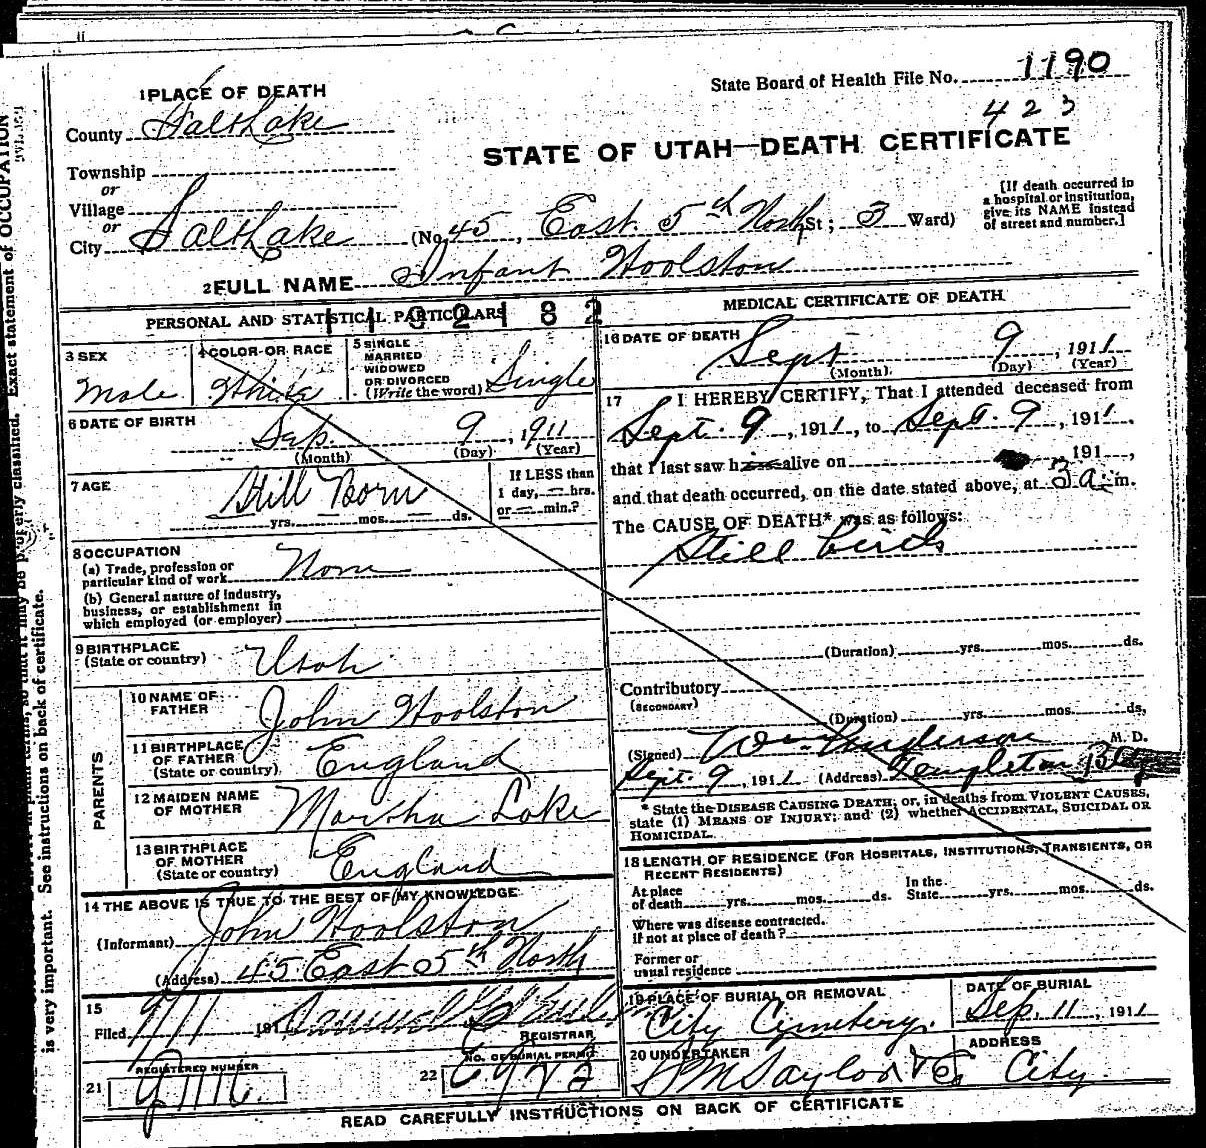 State Board of Health File No. 1190
423
1 PLACE OF DEATH
County Salt Lake
STATE OF UTAH—DEATH CERTIFICATE
Township
or
Village
or
City Salt Lake (No. 45, East 5th North St; 3 Ward)
[If death occurred in a hospital or institution, give its NAME instead of street and number.]
2 FULL NAME Infant Woolston
PERSONAL AND STATISTICAL PARTICULARS
3 SEX Male
4 COLOR OR RACE White
5 SINGLE MARRIED WIDOWED OR DIVORCED (Write the word) Single
6 DATE OF BIRTH Sep. 9, 1911
(Month) (Day) (Year)
7 AGE Still Born
yrs. mos. ds.
If LESS than 1 day, — hrs. or — min.?
8 OCCUPATION
(a) Trade, profession or particular kind of work None
(b) General nature of industry, business, or establishment in which employed (or employer)
9 BIRTHPLACE
(State or country) Utah
PARENTS
10 NAME OF FATHER John Woolston
11 BIRTHPLACE OF FATHER (State or country) England
12 MAIDEN NAME OF MOTHER Martha Lake
13 BIRTHPLACE OF MOTHER (State or country) England
14 THE ABOVE IS TRUE TO THE BEST OF MY KNOWLEDGE
(Informant) John Woolston
(Address) 45 East 5th North
15
Filed 9/11 191
REGISTRAR
REGISTERED NUMBER
21
NO. OF BURIAL PERMIT
22
MEDICAL CERTIFICATE OF DEATH
16 DATE OF DEATH Sept 9, 1911
(Month) (Day) (Year)
17 I HEREBY CERTIFY, That I attended deceased from
Sept. 9, 1911, to Sept. 9, 1911,
that I last saw him alive on 191 ,
and that death occurred, on the date stated above, at 3 a. m.
The CAUSE OF DEATH* was as follows:
Still birth
(Duration) yrs. mos. ds.
Contributory
(SECONDARY)
(Duration) yrs. mos. ds.
(Signed) Wm. Anderson M. D.
Sept. 9, 1911 (Address) Templeton Bldg
* State the DISEASE CAUSING DEATH; or, in deaths from VIOLENT CAUSES,
state (1) MEANS OF INJURY; and (2) whether ACCIDENTAL, SUICIDAL OR
HOMICIDAL.
18 LENGTH OF RESIDENCE (FOR HOSPITALS, INSTITUTIONS, TRANSIENTS, OR
RECENT RESIDENTS)
At place of death yrs. mos. ds. In the State yrs. mos. ds.
Where was disease contracted.
if not at place of death?
Former or
usual residence
19 PLACE OF BURIAL OR REMOVAL City Cemetery.
DATE OF BURIAL Sep. 11, 1911
20 UNDERTAKER Taylor & Co
ADDRESS City
READ CAREFULLY INSTRUCTIONS ON BACK OF CERTIFICATE
is very important. See instructions on back of certificate.
Exact statement of OCCUPATION